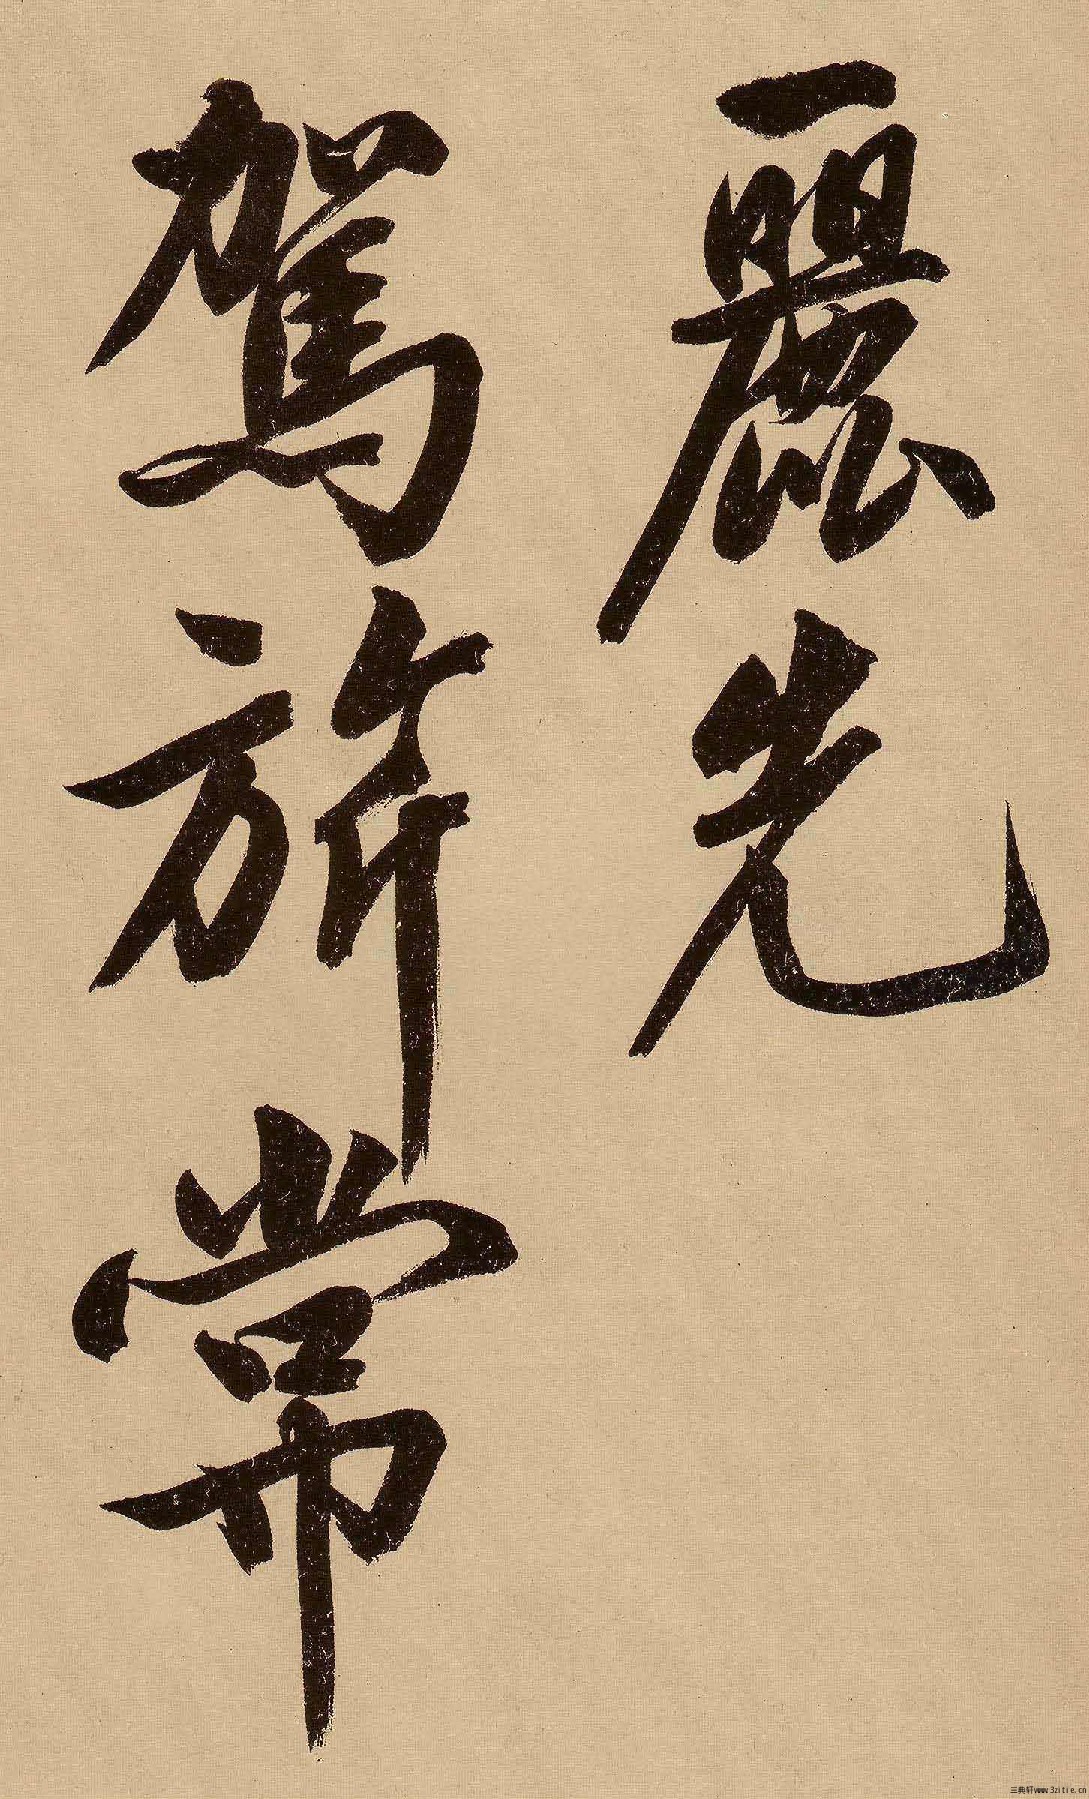 麗光
駕旂常
三典轩www.3zitie.cn